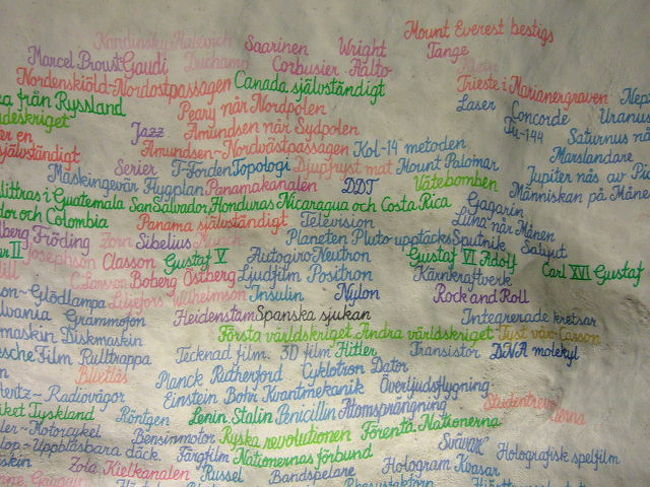 Mount Everest bestigs
Kandinsky Malevich Saarinen Wright Tange
Marcel Proust Gaudi Duchamp Corbusier Aalto
Nordenskiöld-Nordostpassagen Canada självständigt Trieste i Marianergraven
från Ryssland Peary når Nordpolen Laser Concorde Uranus
Jazz Amundsen når Sydpolen Tu-144 Saturnus
självständigt Amundsen-Nordvästpassagen Kol-14 metoden Marslandare
Serier T-Forden Topologi Djuphyst mat Mount Palomar Jupiter nås av
Maskingevär Flygplan Panamakanalen DDT Vätebomben Människan på
i Guatemala San Salvador, Honduras Nicaragua och Costa Rica Gagarin
och Colombia Panama självständigt Television Luna når Månen
Fröding Zorn Sibelius Munch Planeten Pluto upptäcks Sputnik Saljut
Josephson Classon Gustaf V Autogiro Neutron Gustaf VI Adolf Carl XVI Gustaf
C.Larsson Boberg Östberg Ljudfilm Positron Kärnkraftverk
Glödlampa Liljefors Wilhelmson Insulin Nylon Rock and Roll
Grammofon Heidenstam Spanska sjukan Integrerade kretsar
Diskmaskin Första världskriget Andra världskriget Tyst vår-Carson
Film Rulltrappa Tecknad film 3D film Hitler Transistor DNA molekyl
Blixtlås Planck Rutherford Cyklotron Dator
Radiovågor Einstein Bohr Kvantmekanik Överljudsflygning
Tyskland Röntgen Lenin Stalin Penicillin Atomsprängning
Motorcykel Bensinmotor Ryska revolutionen Förenta Nationerna
Uppblåsbara däck Färgfilm Nationernas förbund Svävare Holografisk spelfilm
Zola Kielkanalen Russel Bandspelare Hologram Kvasar